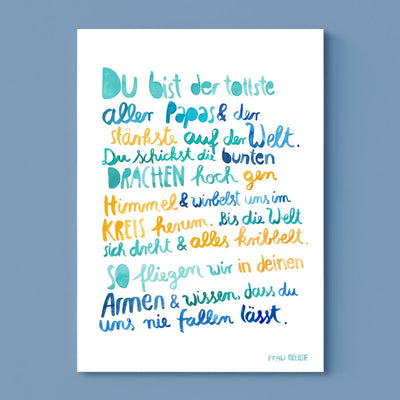 Du bist der tollste
aller Papas & der
stärkste auf der Welt.
Du schickst die bunten
DRACHEN hoch gen
Himmel & wirbelst uns im
KREIS herum. Bis die Welt
sich dreht & alles kribbelt.
SO fliegen wir in deinen
Armen & wissen, dass du
uns nie fallen lässt.
FRAU